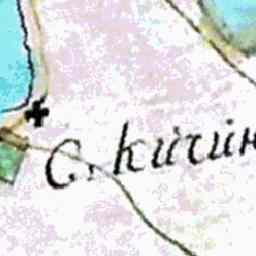 С. Кичин